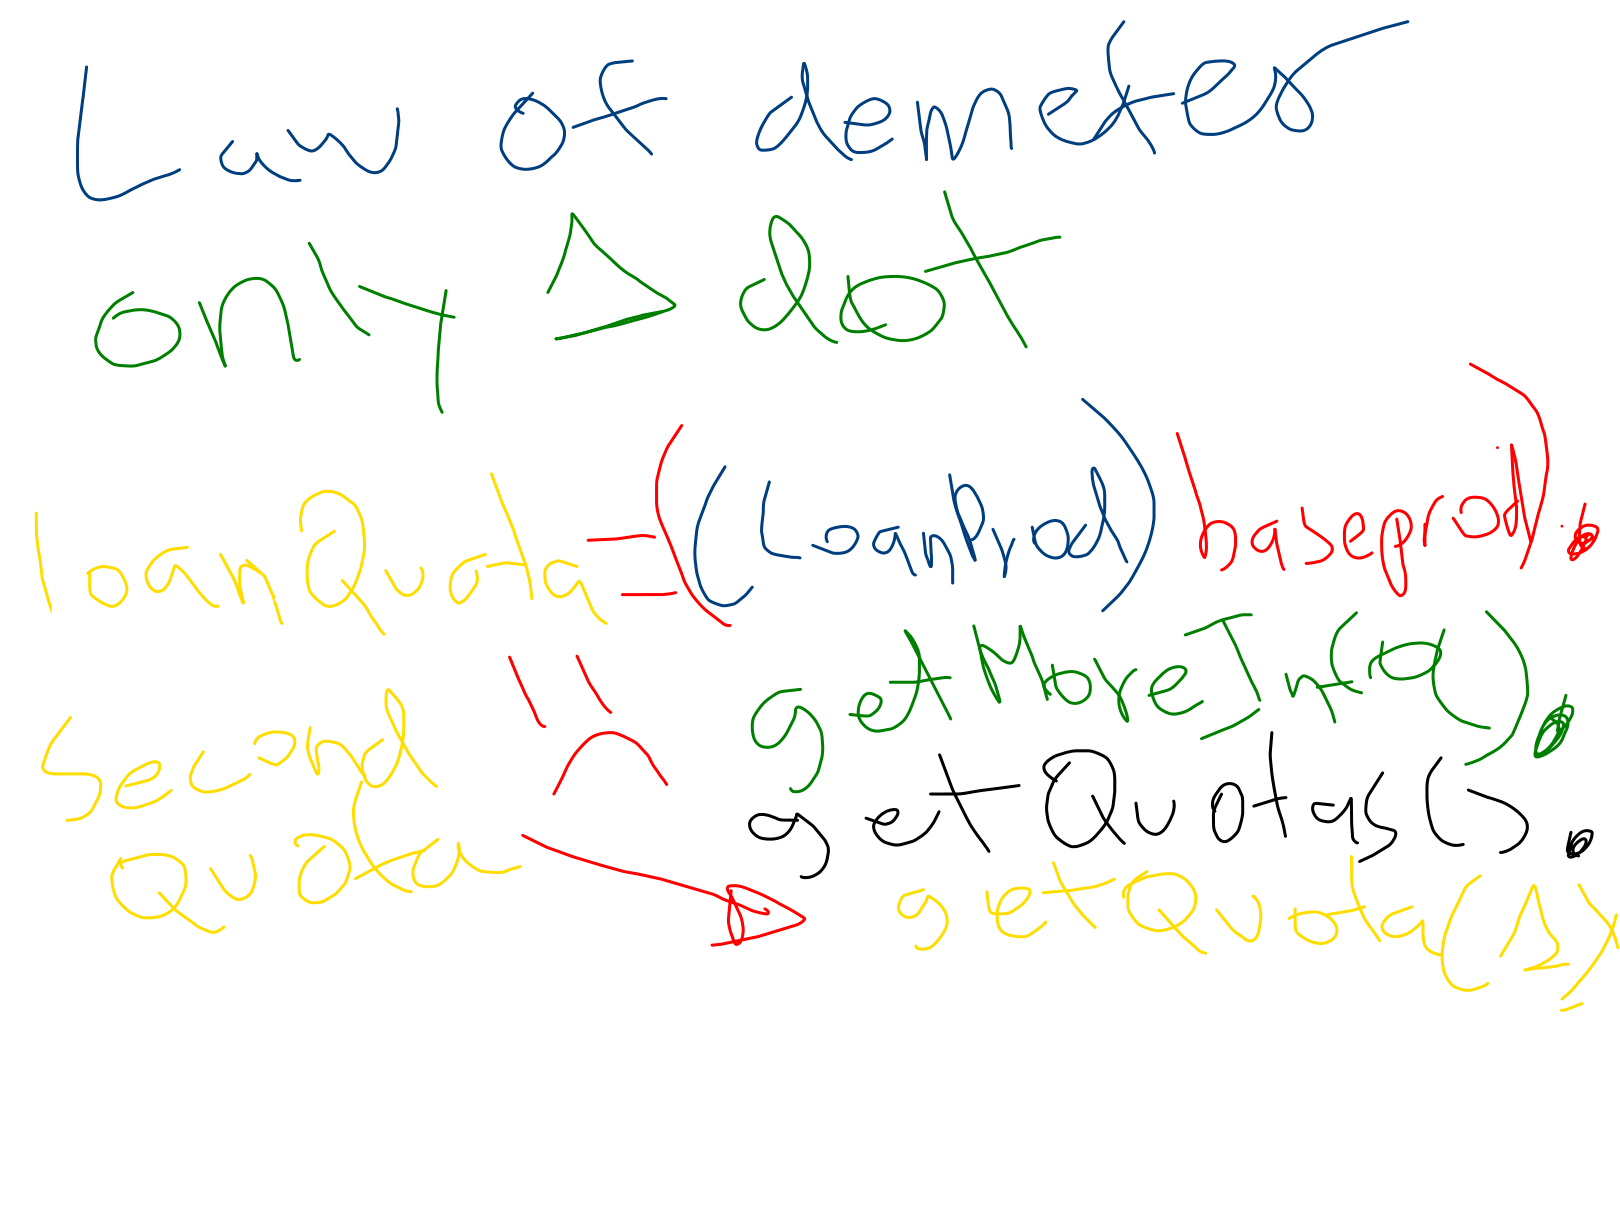 Law of demeter
only 1 dot
loanQuota=((LoanProd)baseprod).
getMoreInfo().
getQuotas().
getQuota(1)
Second
Quota